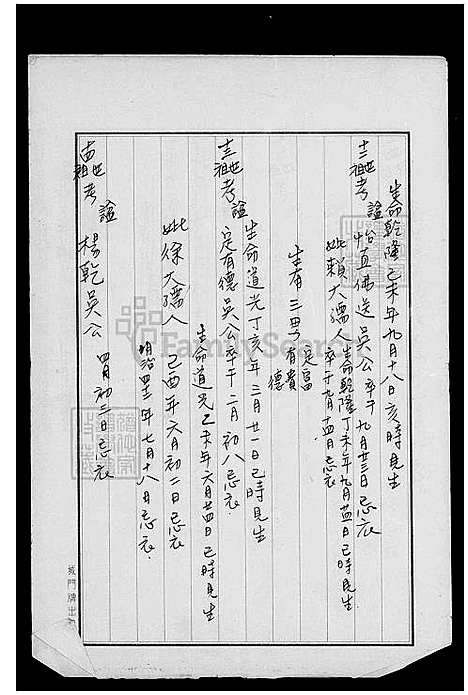 生命乾隆乙未年九月十八日亥時見生
十二世祖考諡怡直佛送吳公卒于九月廿三日忌衣
妣賴大孺人生命乾隆丁未年九月廿四日巳時見生
卒于九月十四日忌衣
生有三男定富有貴德
生命道光丁亥年三月廿一日巳時見生
十三世祖考諡定有德吳公卒于二月初八忌衣
生命道光乙未年六月廿四日巳時見生
妣徐大孺人己酉年六月初二日忌衣
明治四十一年七月十八日忌衣
十四世祖考諡楊乾吳公四月初三日忌衣
FamilySearch
城門牌出